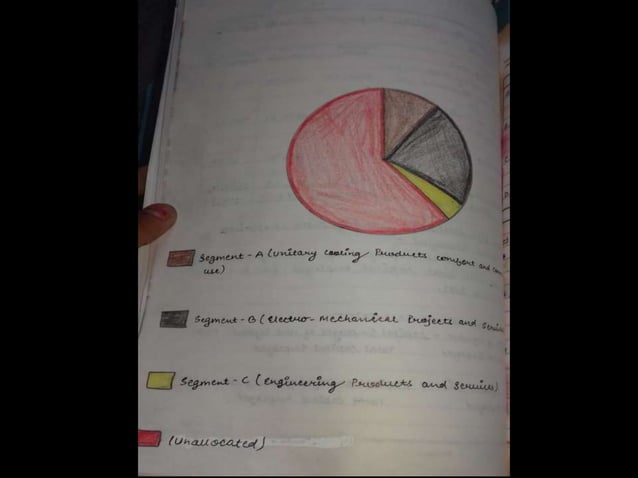 Segment - A (Unitary Cooling Products comfort and
use)
Segment - B (Electro - Mechanical Projects and
Segment - C (Engineering Products and Services)
(Unallocated)